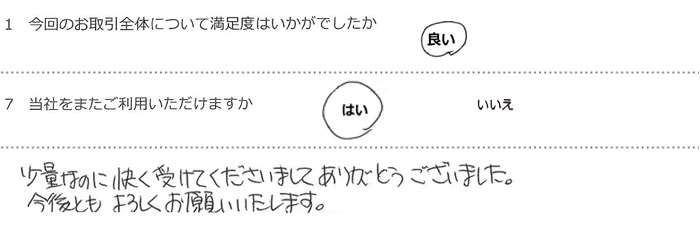 1 今回のお取引全体について満足度はいかがでしたか 良い
7 当社をまたご利用いただけますか はい いいえ
少量なのに快く受けてくださいましてありがとうございました。
今後ともよろしくお願いいたします。